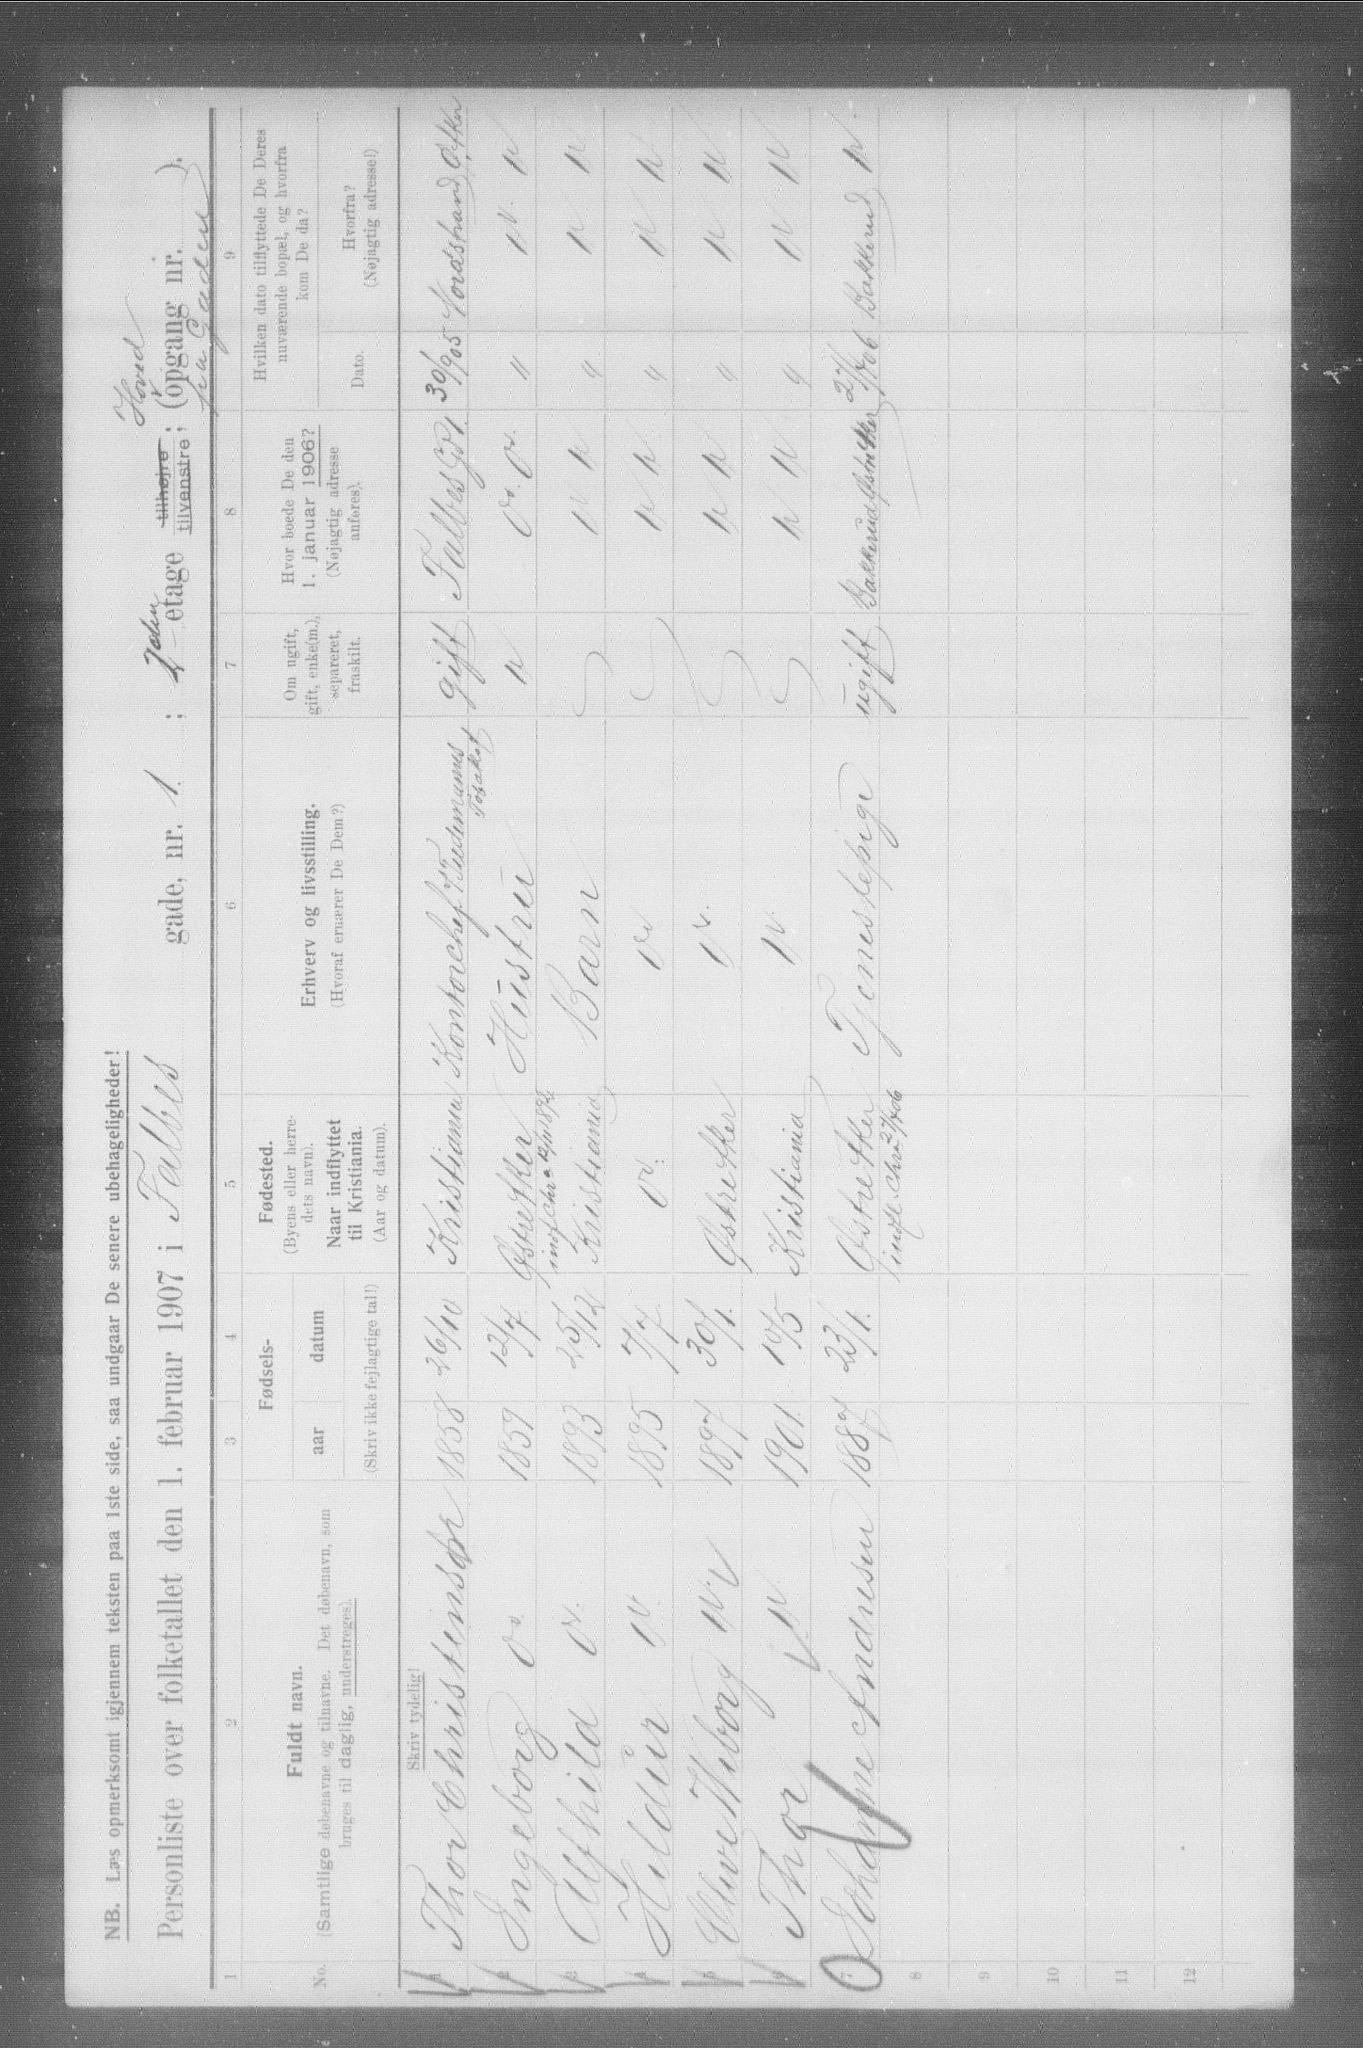 NB. Læs opmerksomt igjennem teksten paa 1ste side, saa undgaar De senere ubehageligheder!
Personliste over folketallet den 1. februar 1907 i Falbes gade, nr. 1 ; etage tilhøjre tilvenstre ; (opgang nr. ).
Hoved
fra Gaden
1 2 3 4 5 6 7 8 9
No.
Fuldt navn.
(Samtlige døbenavne og tilnavne. Det døbenavn, som
bruges til daglig, understreges).
Fødsels-
aar datum
(Skriv ikke fejlagtige tal!)
Fødested.
(Byens eller herre-
dets navn).
Naar indflyttet
til Kristiania.
(Aar og datum).
Erhverv og livsstilling.
(Hvoraf ernærer De Dem?)
Om ugift,
gift, enke(m.),
separeret,
fraskilt.
Hvor boede De den
1. januar 1906?
(Nøjagtig adresse
anføres).
Hvilken dato tilflyttede De Deres
nuværende bopæl, og hvorfra
kom De da?
Dato.
Hvorfra?
(Nøjagtig adresse!)
Skriv tydelig!
1 Thor Christensen 1858 26/10 Kristiania Kontorchef Tiedemanns Tobaksf gift Falbes Gd 1. 30/ 1905 Nordstrand, Ø Aker
2 Ingeborg do 1859 12/7 Østre Aker Hustru " do. do " " "
3 Alfhild do. 1893 25/12 Kristiania Barn " " " " "
4 Hildur " 1895 7/7 do: " " " " " "
5 Wiborg " 1897 30/1. Østre Aker " " " " " "
6 Thor " 1901. 10/5 Kristiania " " " " " "
7 Andresen 1887 23/1. Østre Aker indfl. Chra 27/ 06 Tjenestepige ugift Bakkerud 27/ 06 Bakkerud "
8
9
10
11
12